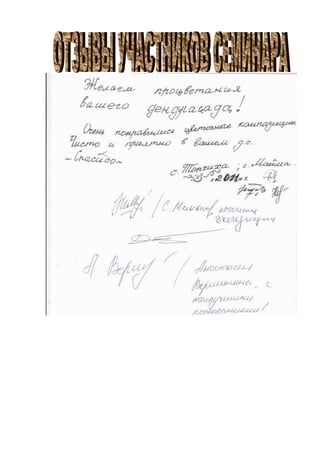 ОТЗЫВЫ УЧАСТНИКОВ СЕМИНАРА
Желаем процветания
вашего дендросада!
Очень понравились цветочные композиции
Чисто и приятно в вашем д.с.
~Спасибо~
с. Топчиха; с.
2011г
/ с.
П. Верш / Анастасия
Вершинина, с
наилучшими
пожеланиями!